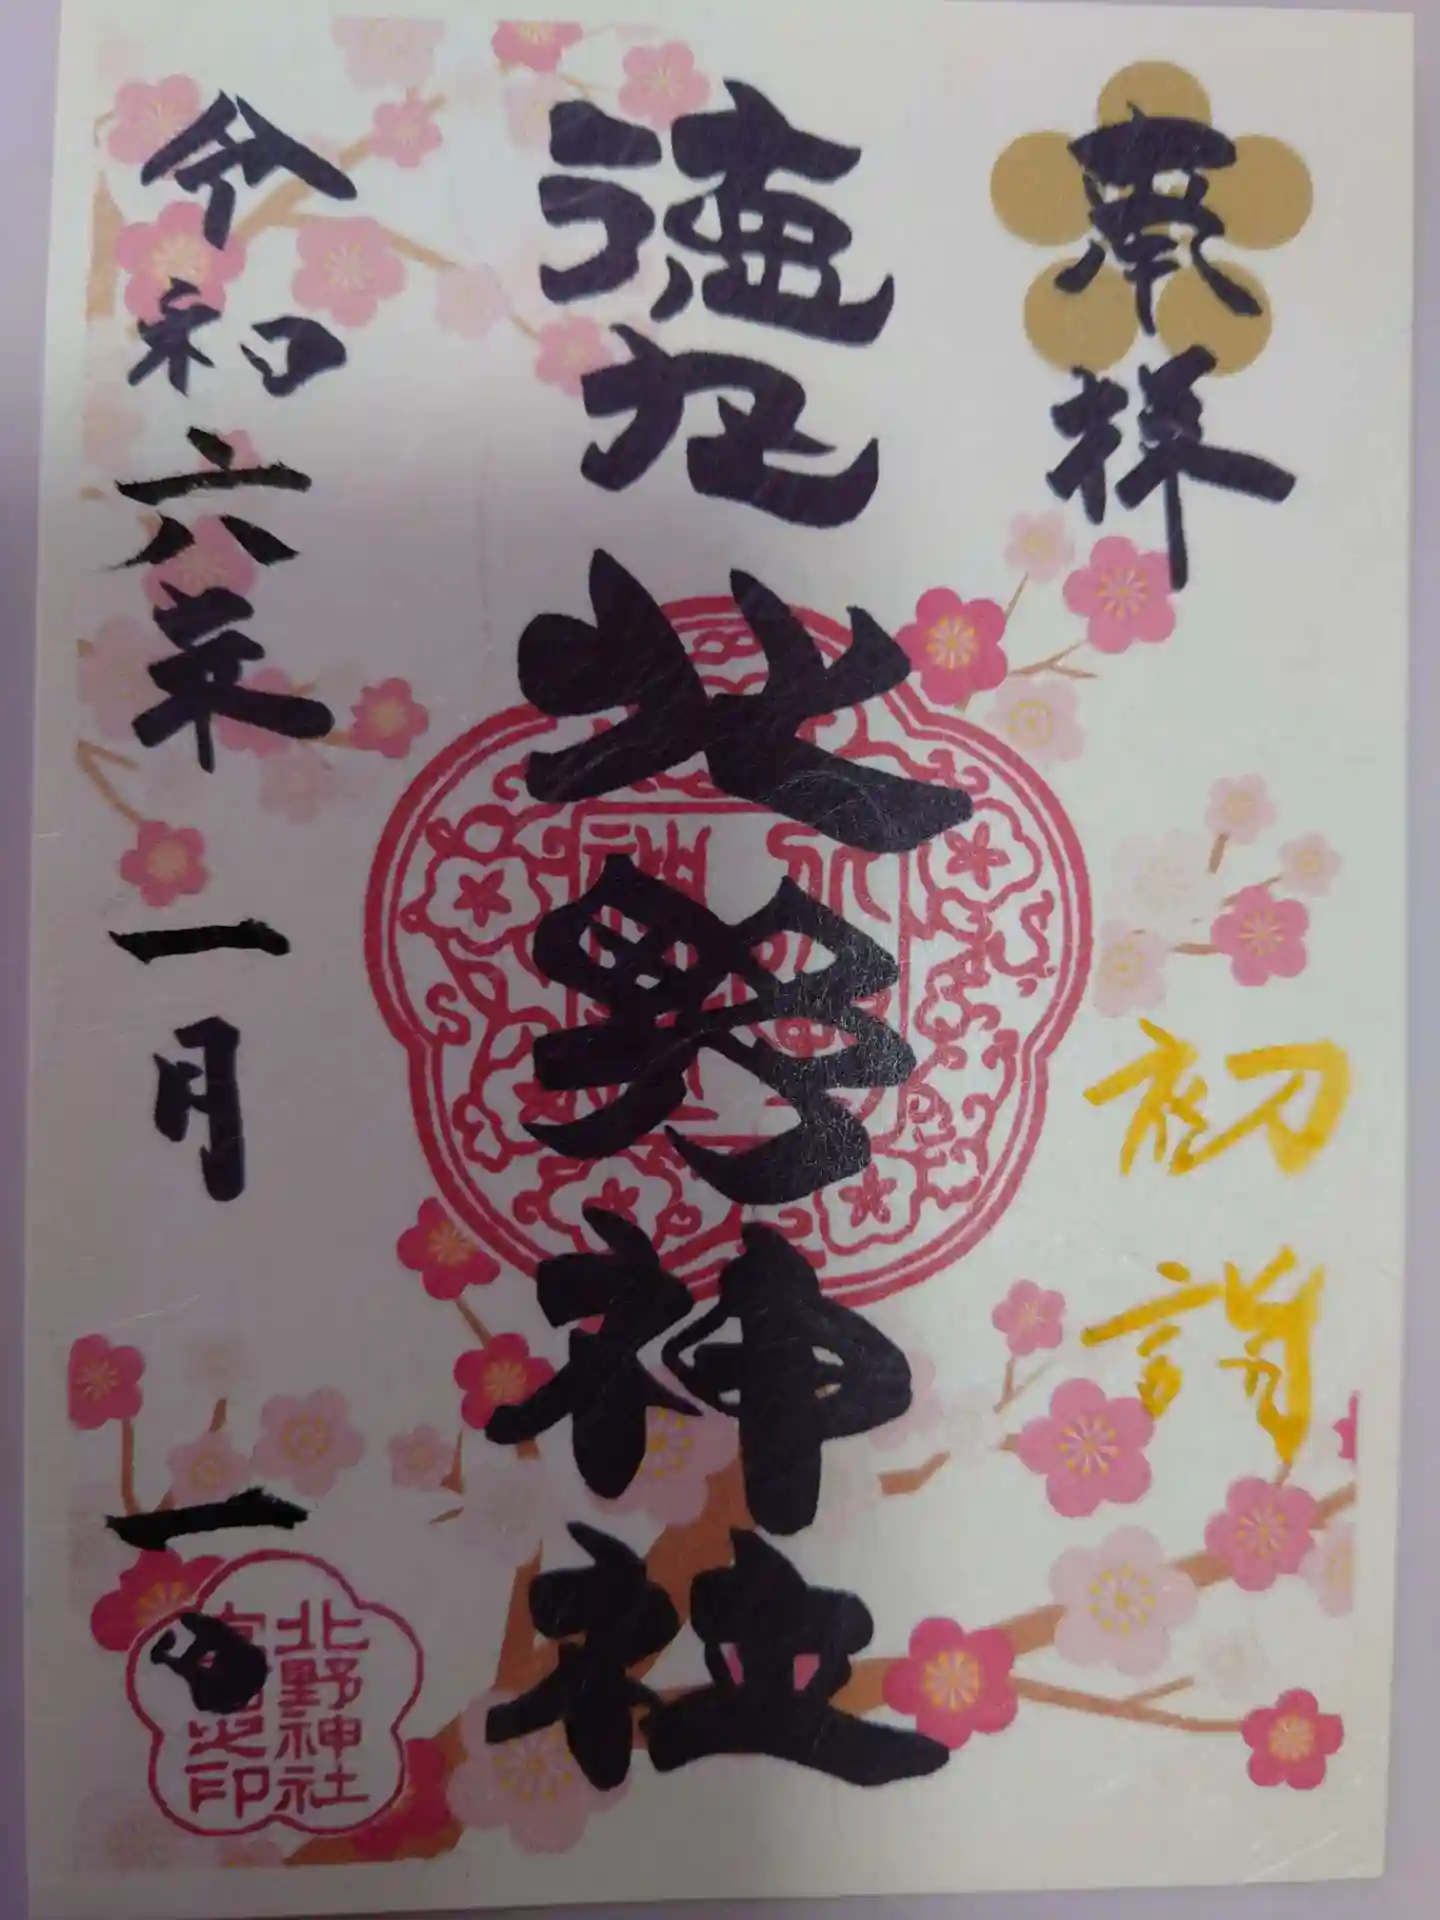 奉拝
初詣
徳丸北野神社
令和六年一月一日
北野神社
宮司之印